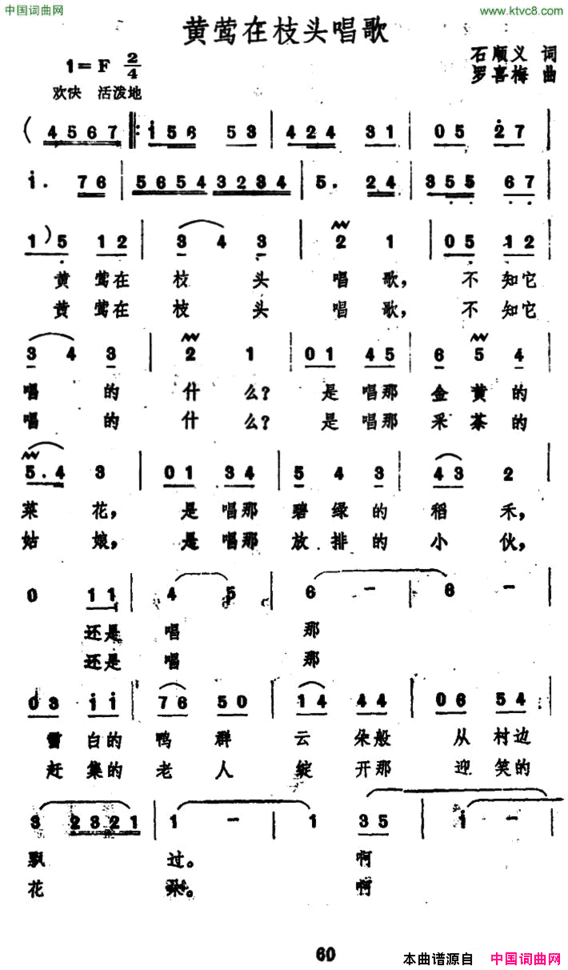 中国词曲网
www.ktvc8.com
黄莺在枝头唱歌
1=F 2/4
石顺义 词
罗喜梅 曲
欢快 活泼地
( 4567 ‖: i56 53 | 424 31 | 05 27
i. 76 | 5654 3234 | 5. 24 | 355 67
1) 5 12 | 3 4 3 | 2 1 | 05 12
黄 莺在 枝 头 唱 歌, 不 知它
黄 莺在 枝 头 唱 歌, 不 知它
3 4 3 | 2 1 | 01 45 | 6 5 4
唱 的 什 么? 是 唱那 金 黄 的
唱 的 什 么? 是 唱那 采 茶 的
5.4 3 | 01 34 | 5 4 3 | 43 2
菜 花, 是 唱那 碧 绿 的 稻 禾,
姑 娘, 是 唱那 放 排 的 小 伙,
0 11 | 4 5 | 6 - | 6 -
还是 唱 那
还是 唱 那
03 ii | 76 50 | 14 44 | 06 54
雪 白的 鸭 群 云 朵般 从 村边
赶 集的 老 人 绽 开那 迎 笑的
3 2321 | 1 - | 1 35 | i -
飘 过。 啊
花 朵。 啊
60
本曲谱源自 中国词曲网